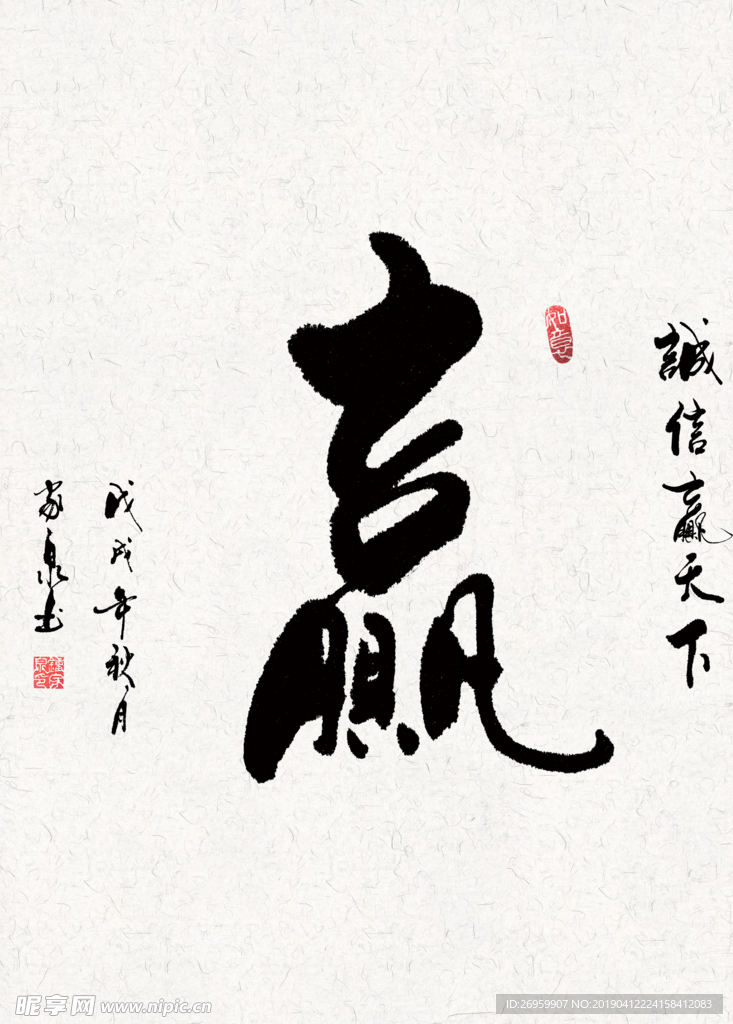 誠信赢天下
如意
赢
戊戌年秋月
家泉书
鍾家泉印
昵享网 www.nipic.cn
ID:26959907 NO:20190412224158412083